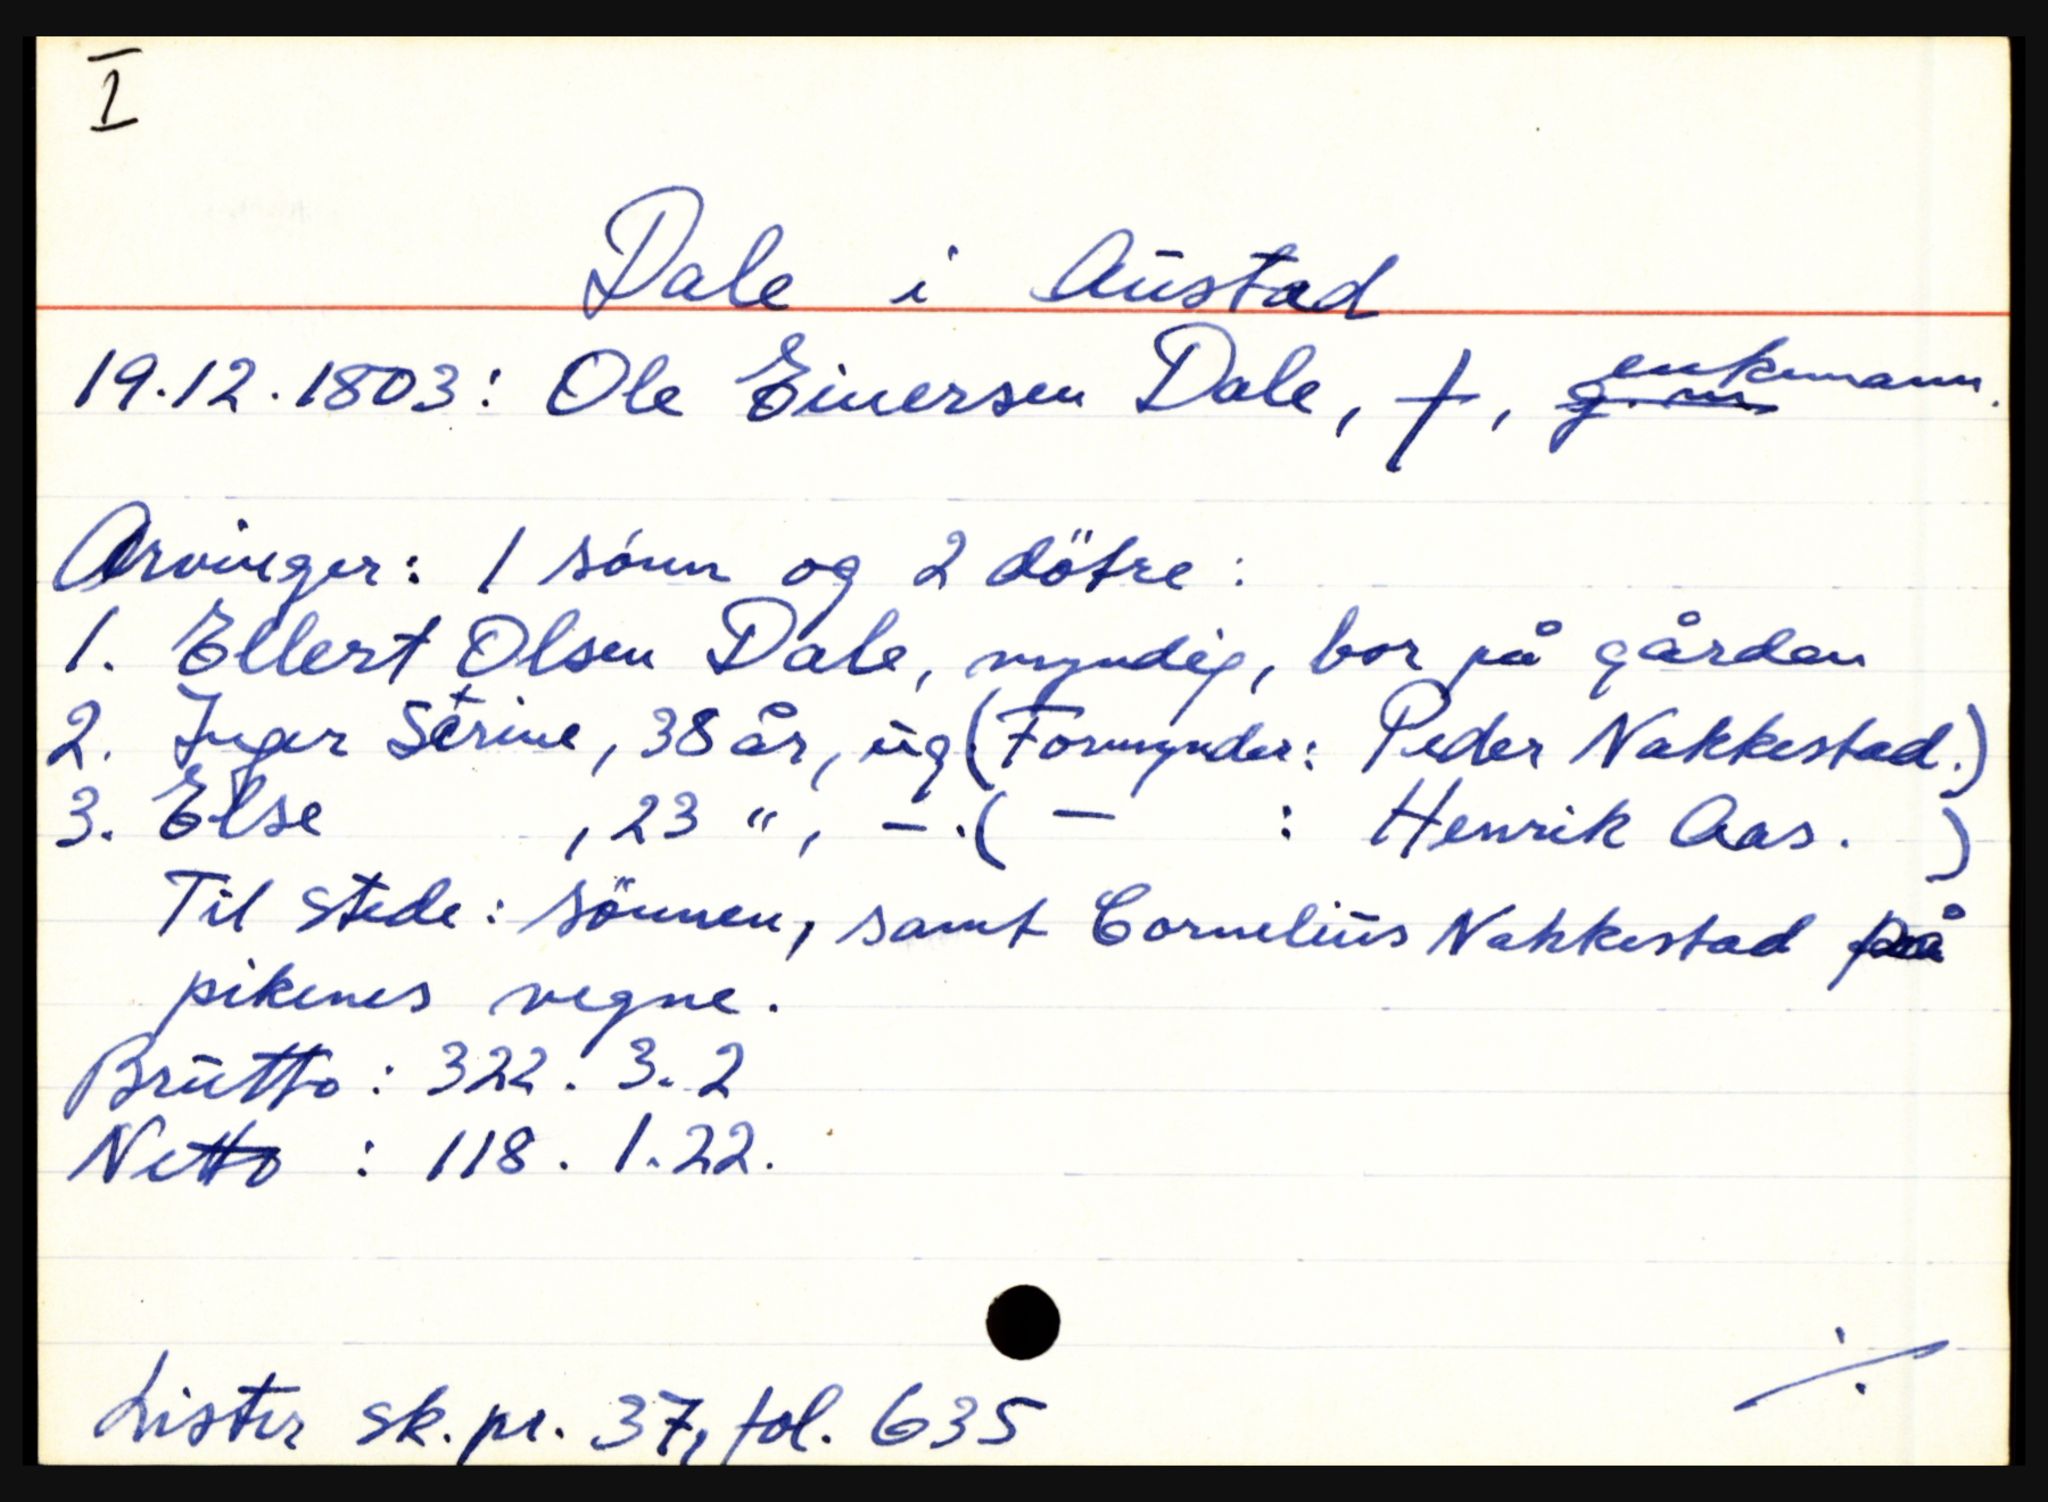 I
Dale i Austad
19.12.1803: Ole Einersen Dale, †, g. m. enkemann.
Arvinger: 1 sönn og 2 dötre:
1. Ellert Olsen Dale, myndig, bor på gården
2. Inger Strine, 38 år, ug. (Formynder: Peder Nakkestad.)
3. Else , 23 ", – . ( – : Henrik Aas. )
Til stede: sönnen, samt Cornelius Nakkestad på
pikenes vegne.
Brutto: 322. 3. 2
Netto : 118. 1. 22.
./.
Lister sk. pr. 37, fol. 635